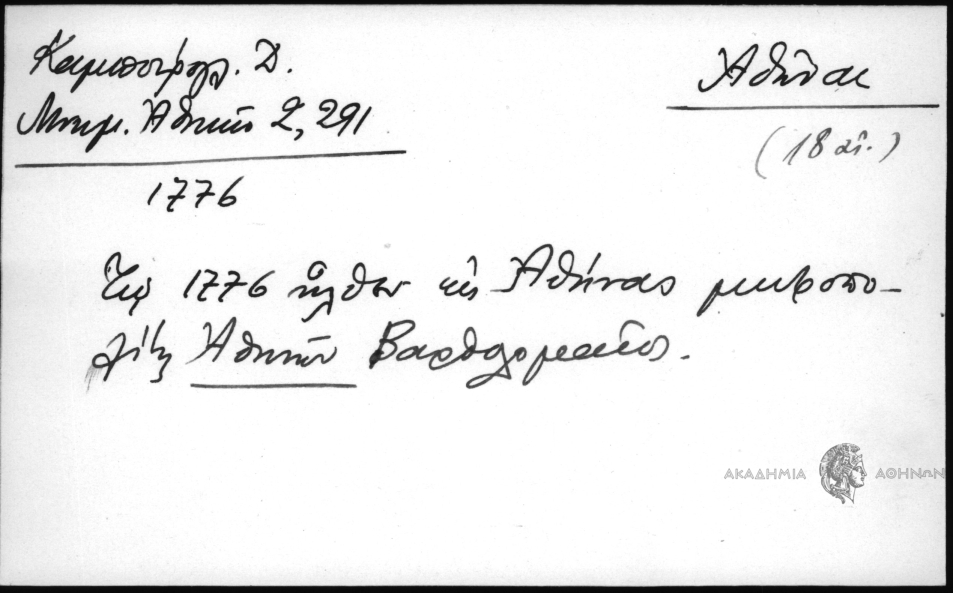 Καμπούρογλ. Δ.
Μνημ. Ἀθηνῶν 2, 291
1776
Ἀθῆναι
(18 αἰ.)
Τῷ 1776 ἦλθεν εἰς Ἀθήνας μητροπο-
λίτης Ἀθηνῶν Βαρθολομαῖος.
ΑΚΑΔΗΜΙΑ ΑΘΗΝΩΝ